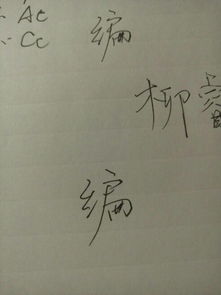 Ac 编
Cc
柳
编